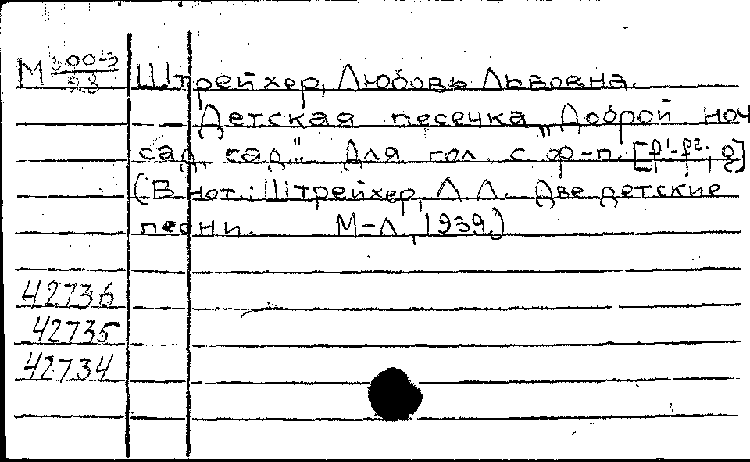 М 200-3/93 Штрейхер, Любовь Львовна.
Детская песенка „Доброй ноч
сад, сад". Для гол. с ф-п. [f¹-f²; g]
(В нот.: Штрейхер, Л. Л. Две детские
песни. М-Л, 1939.)
42736
42735
42734